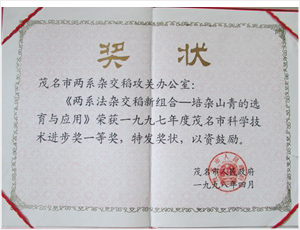 奖状
茂名市两系杂交稻攻关办公室：
《两系法杂交稻新组合—培杂山青的选
育与应用》荣获一九九七年度茂名市科学技
术进步奖一等奖，特发奖状，以资鼓励。
茂名市人民政府
一九九八年四月